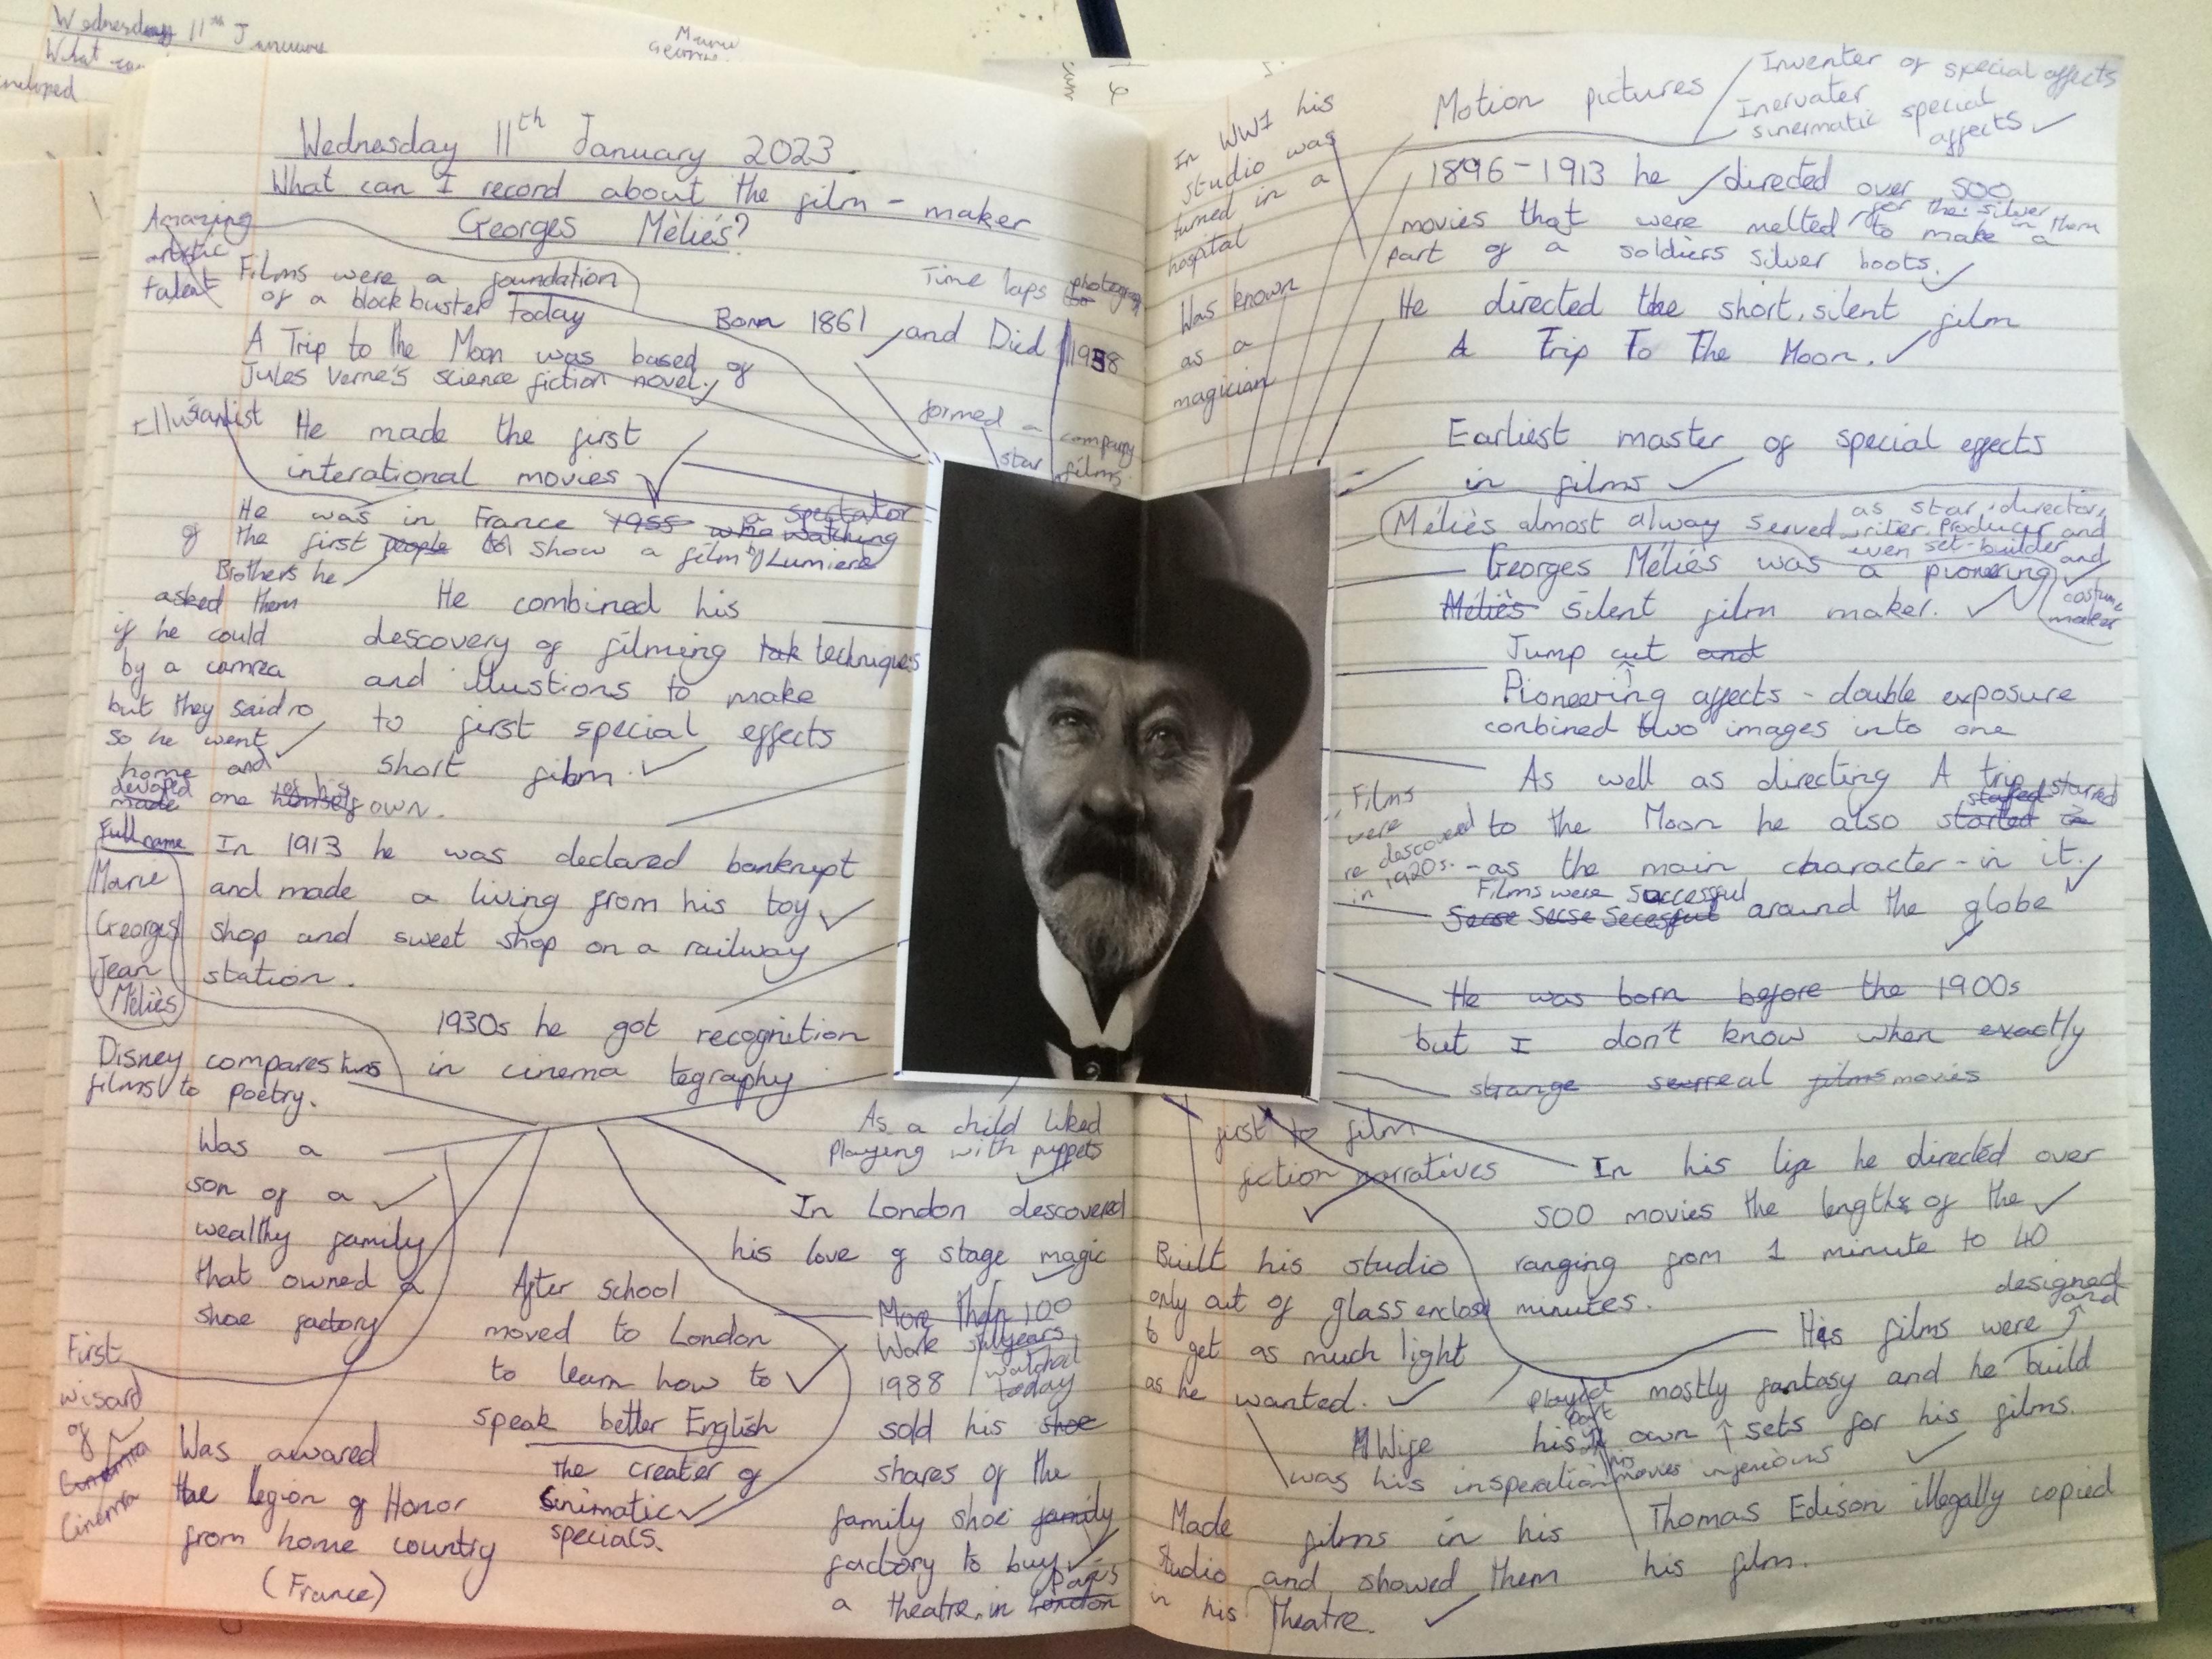 Wednesday 11th January 2023
What can I record about the film - maker
Georges Mèliés?
Amazing
artistic
talent
Films were a foundation
of a blockbuster today
A Trip to the Moon was based of
Jules Verne's science fiction novel.
Born 1861 and Died 1938
Time laps
formed a company
star films
Ellusanist
He made the first
interational movies
He was in France 1955 a spectator
who watching
of the first people to show a film by Lumiere
Brothers he
asked them
if he could
by a camrea
but they said no
so he went
home and
devoped
made one of his himself own.
He combined his
descovery of filming tak techniques
and illustions to make
to first special effects
short film.
Full name
Marie
Georges
Jean
Méliès
In 1913 he was declared bankrupt
and made a living from his toy
shop and sweet shop on a railway
station.
1930s he got recognition
in cinema tegraphy
Disney compares his
films to poetry.
Was a
son of a
wealthy family
that owned a
shoe factory
First
wisard
of
Cinema
Was awared
the legion of Honor
from home country
(France)
After school
moved to London
to learn how to
speak better English
The creater of
Sinimatic
specials.
As a child liked
playing with puppets
In London descovered
his love of stage magic
More than 100
years
Work still
watched
today
1988
sold his shoe
shares of the
family shoe family
factory to buy
Paris
a theatre in London
In WW1 his
studio was
turned in a
hospital
Was known
as a
magician
Motion pictures
Inventer of special affects
Inervater
sinermatic special
affects
1896-1913 he directed over 500
movies that were melted for the silver in them to make a
part of a soldiers silver boots.
He directed the short, silent film
A Trip To The Moon.
Earliest master of special effects
in films
Méliès almost alway served as star, director,
writer, Producer and
even set-builder and
costume
maker
Georges Méliés was a pionering
Méliès silent film maker.
Jump cut and
Pioneering affects - double exposure
conbined two images into one
As well as directing A trip
to the Moon he also started starred
- as the main character - in it.
Films
were
re descovered
in 1920s.
Films were successful
Secesful around the globe
He was born before the 1900s
but I don't know when exactly
strange surreal films movies
first to film
fiction narratives
In his life he directed over
500 movies the lengths of the
ranging from 1 minute to 40
minutes.
Built his studio
only out of glass enclosd
to get as much light
as he wanted.
designed
and
His films were
mostly fantasy and he build
his own sets for his films.
Played
part
in his
movies
injenious
Wife
was his insperation
Thomas Edison illegally copied
his film.
Made films in his
Studio and showed them
in his Theatre.
Wednesday 11th January
What
Marie
Georges